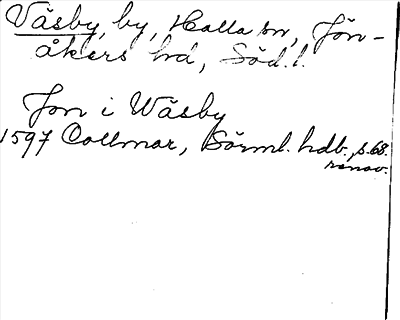 Väsby, by, Halla sn, Jön-
åkers hd, Söd.l.
Jon i Wäsby
1597 Collmar, Sörml. hdb. s.68.
renov.